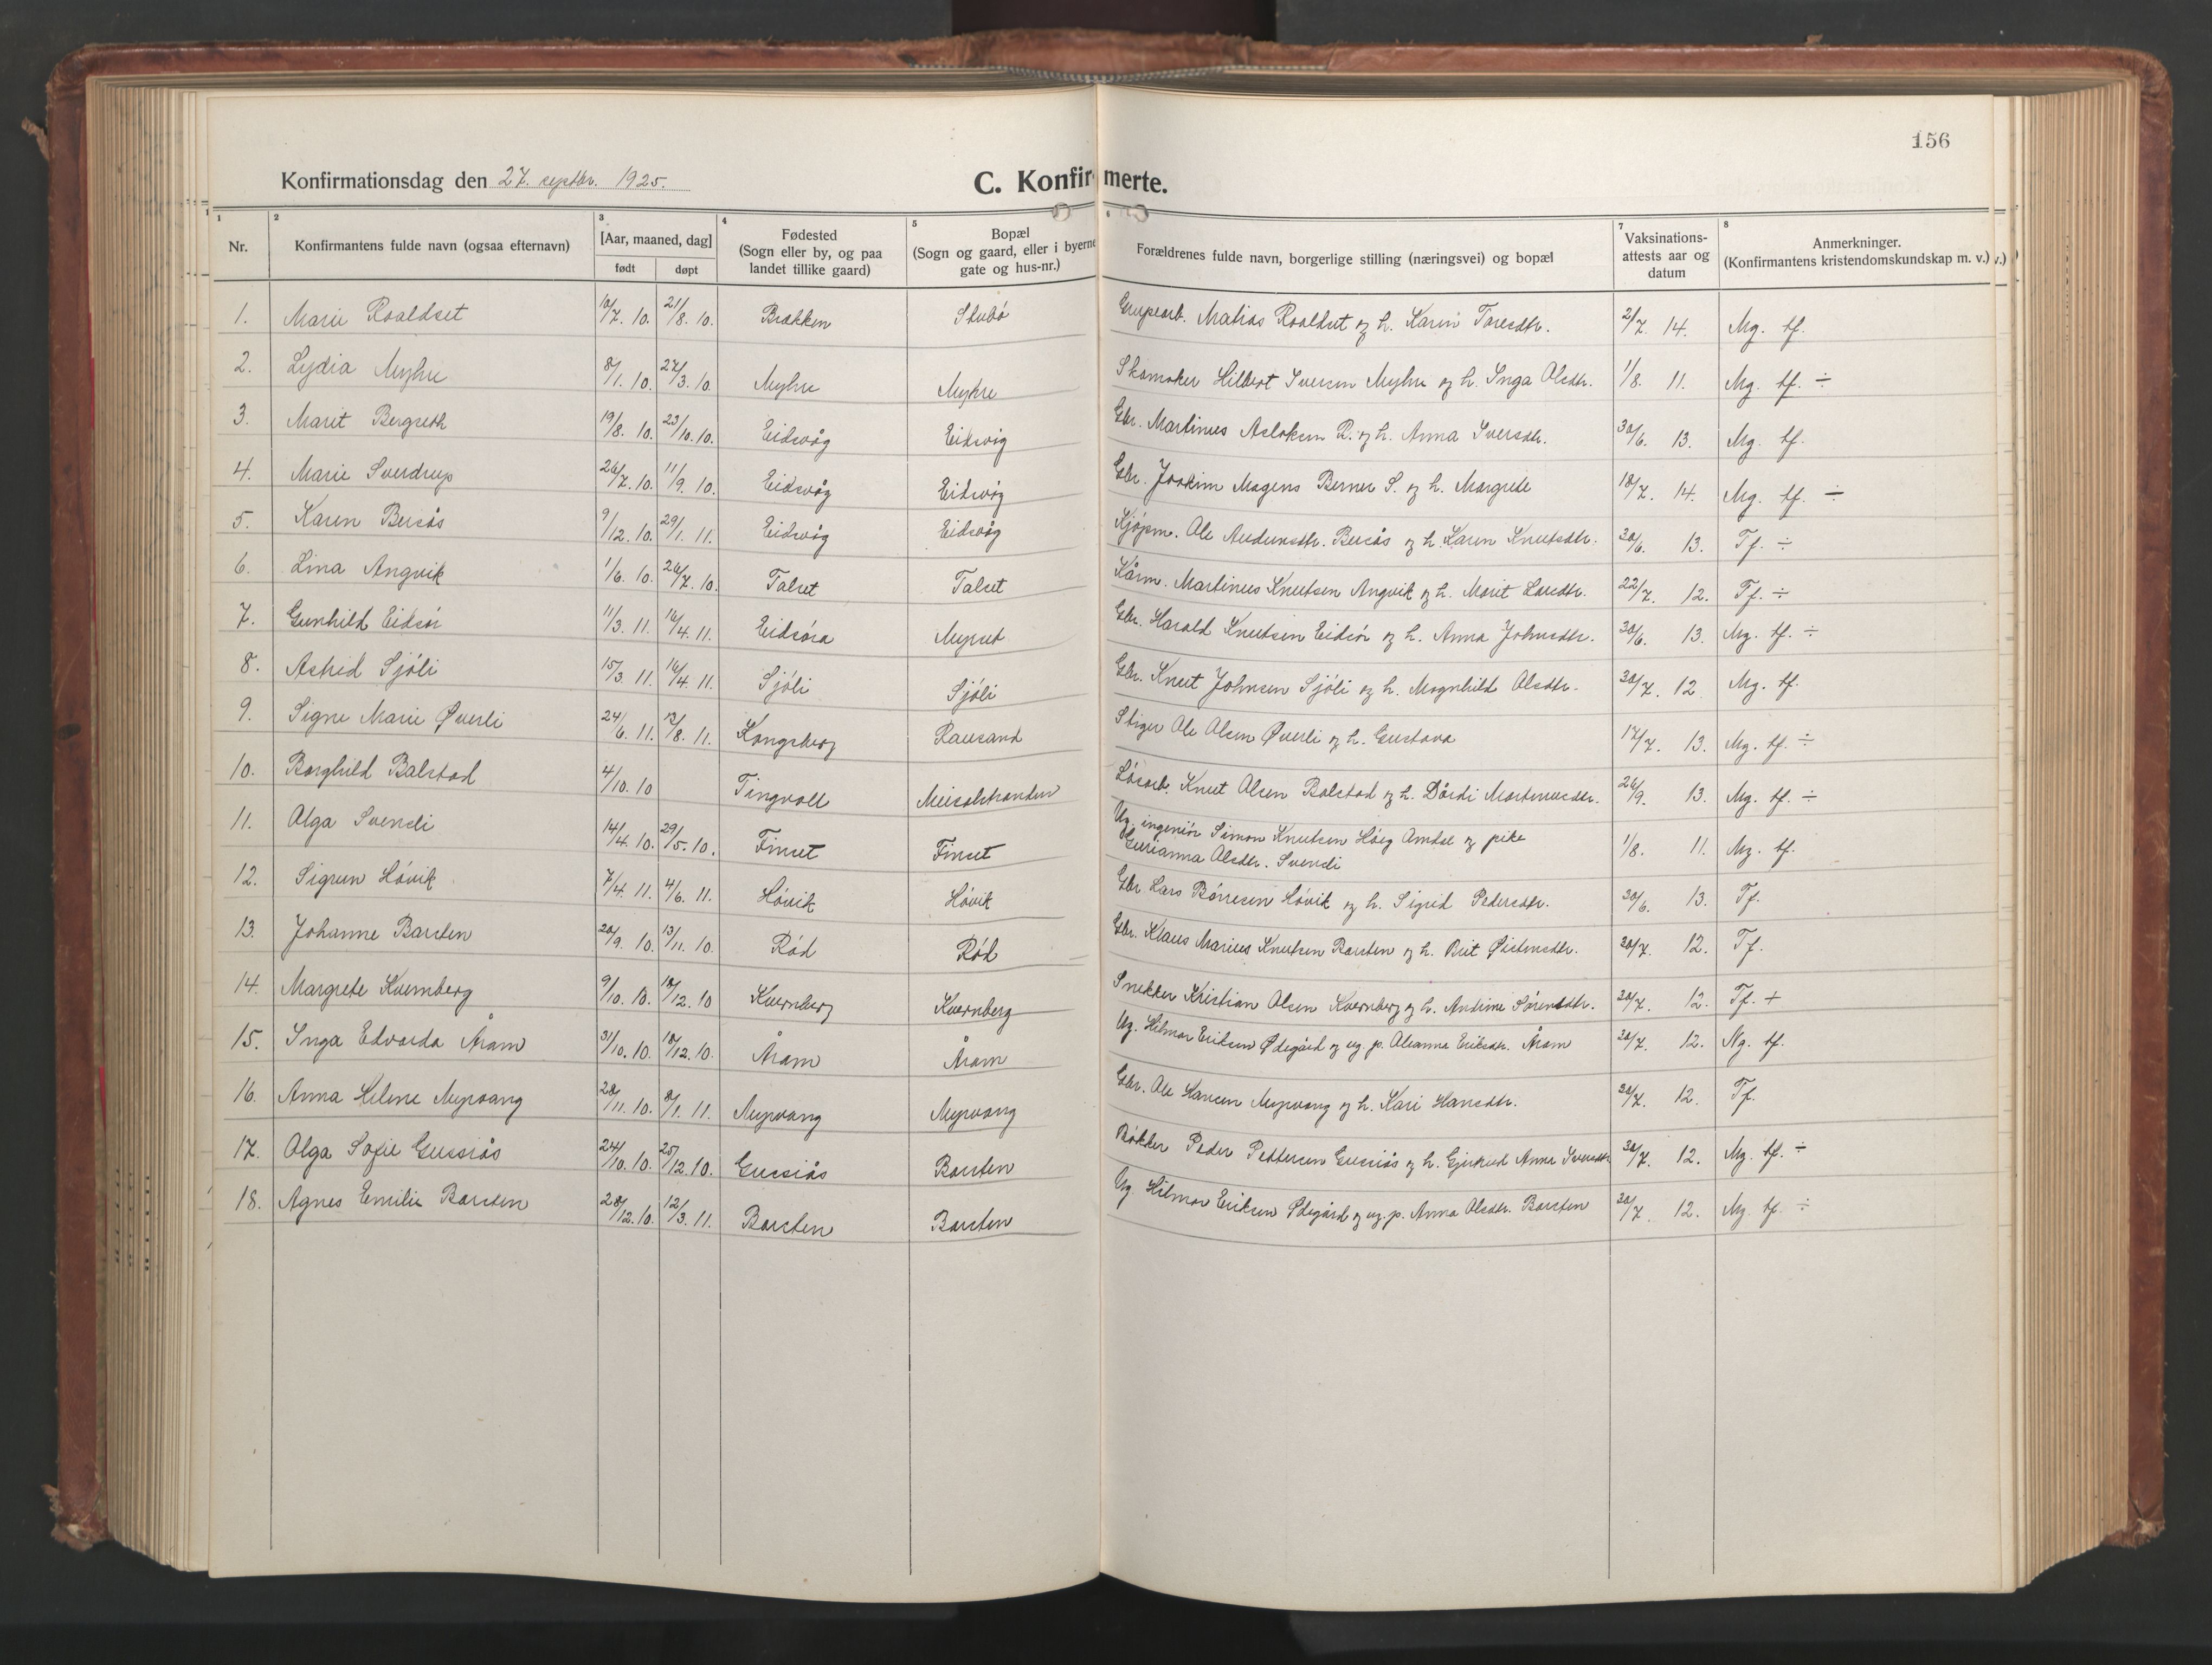 156
Konfirmationsdag den 27. septbr. 1925.
C. Konfirmerte.
1 2 3 4 5 6 7 8
Nr. | Konfirmantens fulde navn (ogsaa efternavn) | [Aar, maaned, dag] født | døpt | Fødested (Sogn eller by, og paa landet tillike gaard) | Bopæl (Sogn og gaard, eller i byerne gate og hus-nr.) | Forældrenes fulde navn, borgerlige stilling (næringsvei) og bopæl | Vaksinations-attests aar og datum | Anmerkninger. (Konfirmantens kristendomskundskap m. v.)
1. Marie Roaldset 10/7. 10. 21/8. 10. Brakken Stubø Grupearb. Matias Roaldset og h. Karen Toresdtr. 2/7. 14. Mg. tf.
2. Lydia Myhre 8/1. 10. 27/3. 10. Myhre Myhre Skomaker Hilbert Iversen Myhre og h. Inga Olsdtr. 1/8. 11. Mg. tf. ÷
3. Marit Bergseth 19/8. 10. 23/10. 10. Eidsvåg Eidsvåg Gbr. Martinus Aslaksen B. og h. Anna Iversdtr. 30/6. 13. Mg. tf.
4. Marie Sverdrup 26/7. 10. 11/9. 10. Eidsvåg Eidsvåg Gbr. Joakim Magens Berner S. og h. Margrete 18/7. 14. Mg. tf. ÷
5. Karen Bersås 9/12. 10. 29/1. 11. Eidsvåg Eidsvåg Kjøpm. Ole Andersdtr. Bersås og h. Karen Knutsdtr. 30/6. 13. Tf. ÷
6. Lina Angvik 1/6. 10. 26/7. 10. Talset Talset Kårm. Martinus Knutsen Angvik og h. Marit Larsdtr. 22/7. 12. Tf. ÷
7. Gunhild Eidsør 11/3. 11. 16/4. 11. Eidsøra Myrset Gbr. Harald Knutsen Eidsør og h. Anna Johnsdtr. 30/6. 13. Mg. tf. ÷
8. Astrid Sjøli 15/3. 11. 16/4. 11. Sjøli Sjøli Gbr. Knut Johnsen Sjøli og h. Magnhild Olsdtr. 30/7. 12 Mg. tf.
9. Signe Marie Øverli 24/6. 11. 13/8. 11. Kongsberg Rausand Stiger Ole Olsen Øverli og h. Gustava 17/7. 13. Mg. tf. ÷
10. Borghild Balstad 4/10. 10 Tingvoll Meisalstranden Løsarb. Knut Olsen Balstad og h. Dórdi Martinusdtr. 26/9. 13. Mg. tf. ÷
11. Olga Svensli 14/4. 10. 29/5. 10. Finset Finset Ug. ingeniør Simon Knutsen Høeg Amdal og pike
Gurianna Olsdtr. Svensli 1/8. 11. Mg. tf.
12. Sigrun Høvik 7/4. 11. 4/6. 11. Høvik Høvik Gbr. Lars Børresen Høvik og h. Sigrid Pedersdtr. 30/6. 13. Tf.
13. Johanne Barsten 20/9. 10. 13/11. 10. Rød Rød Gbr. Klaus Marius Knutsen Barsten og h. Brit Øistensdtr. 30/7. 12. Tf.
14. Margrete Kvernberg 9/10. 10. 18/12. 10 Kvernberg Kvernberg Snekker Kristian Olsen Kvernberg og h. Andrine Sørensdtr. 30/7. 12. Tf. +
15. Inga Edvarda Åram 31/10. 10. 18/12. 10. Åram Åram Ug. Hilmar Eriksen Ødegård og ug. p. Oleanna Eriksdtr. Åram 30/7. 12. Ng. tf.
16. Anna Helene Myrvang 20/11. 10. 8/1. 11. Myrvang Myrvang Gbr. Ole Hansen Myrvang og h. Kari Hansdtr. 30/7. 12. Tf.
17. Olga Sofie Gussiås 24/10. 10. 25/12. 10. Gussiås Barsten Bøkker Peder Pettersen Gussiås og h. Gjertrud Anna Iversdtr. 30/7. 12. Mg. tf. ÷
18. Agnes Emilie Barsten 28/12. 10. 12/3. 11. Barsten Barsten Ug. Hilmar Eriksen Ødegård og ug. p. Anna Olsdtr. Barsten 30/7. 12. Mg. tf. ÷